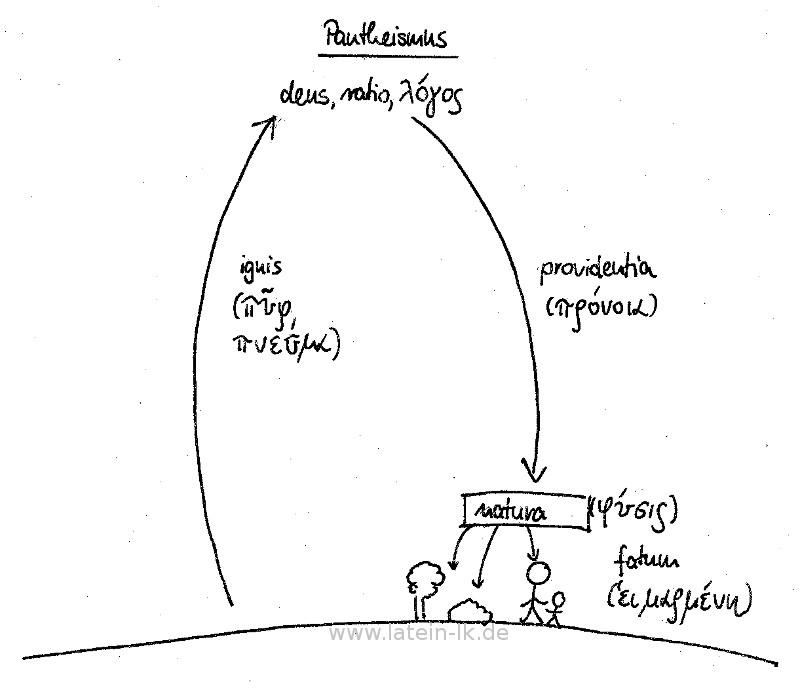 Pantheismus
deus, ratio, λόγος
ignis
(πῦρ,
πνεῦμα)
providentia
(πρόνοια)
natura (φύσις)
fatum
(εἱμαρμένη)
www.latein-lk.de